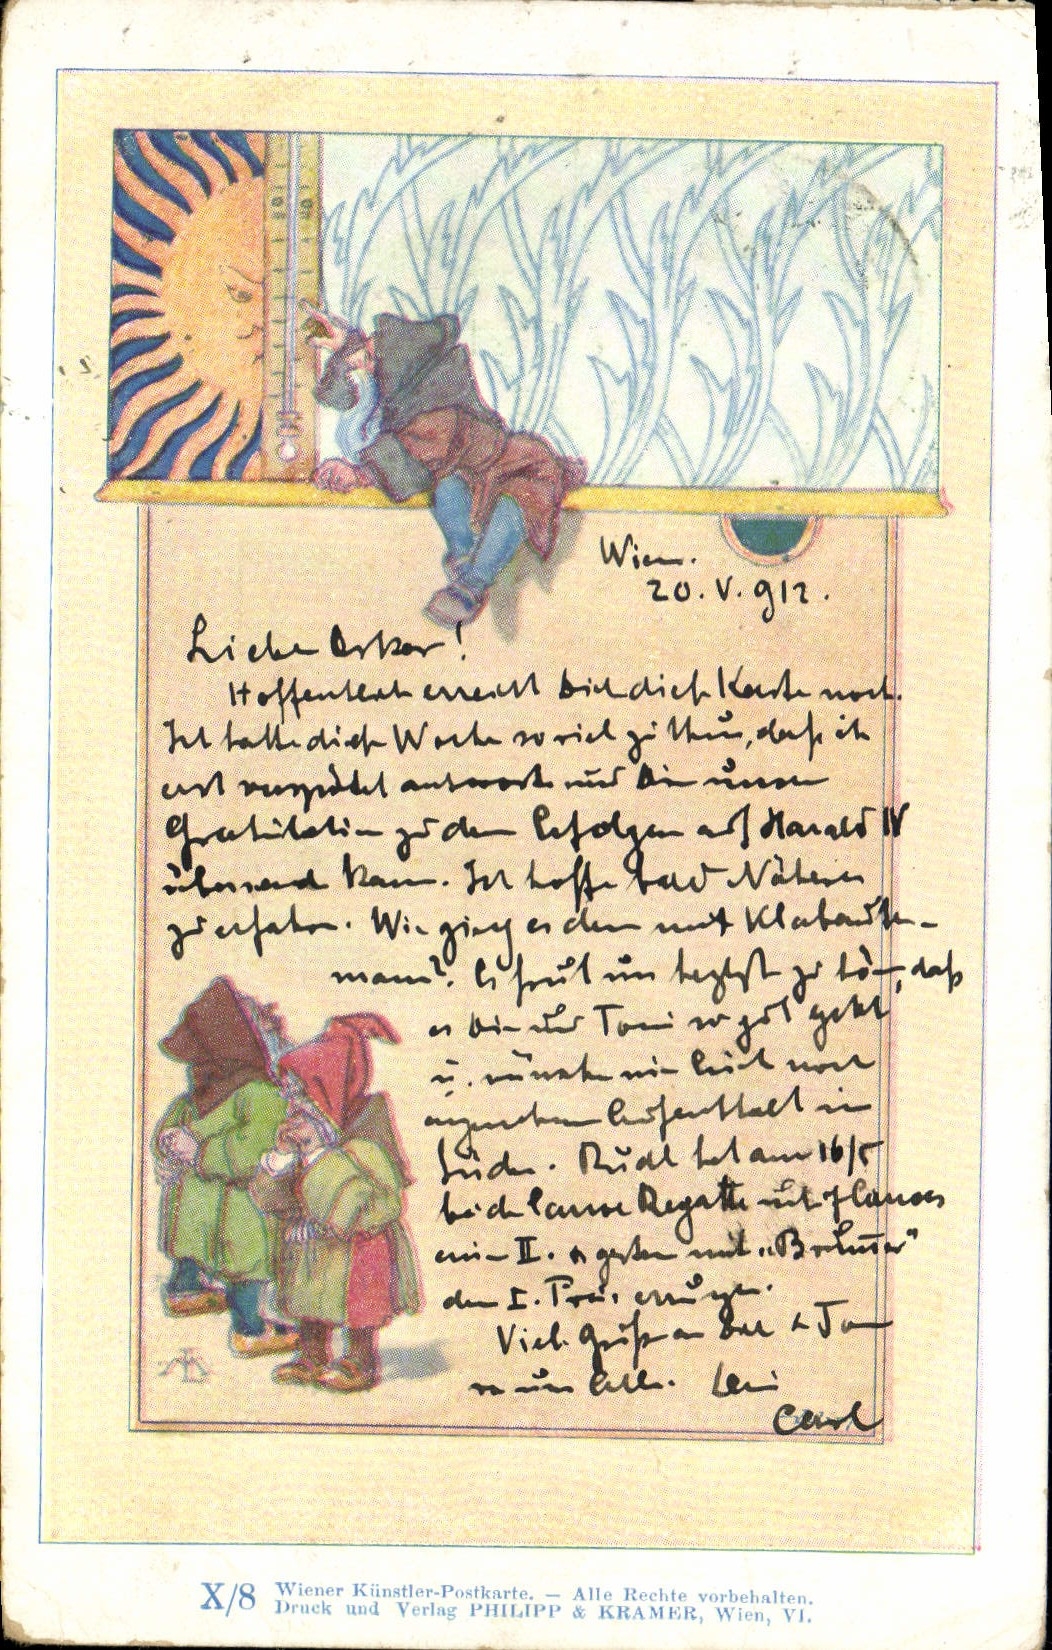 Wien.
20. V. 912.
Lieber Oskar!
Hoffentlich erreicht Dich diese Karte noch.
Ich hatte diese Woche so viel zu thun, daß ich
erst verspätet antworte und Dir unsere
Gratulation zu den Erfolgen auf Harald IV
übersenden kann. Ich hoffe bald Näheres
zu erfahren. Wie ging es denn mit Klabauter-
mann? Es freut uns herzlichst zu hören, daß
es Dir und Toni so gut geht
u. wünschen wir Euch noch
angenehmen Aufenthalt im
Süden. Rudl hat am 16/5
bei der Regatta mit
einen II. gestern mit
den I. Preis errungen.
Viele Grüße an Dich & Toni
von uns Allen. Dein
Carl
X/8 Wiener Künstler-Postkarte. — Alle Rechte vorbehalten.
Druck und Verlag PHILIPP & KRAMER, Wien, VI.